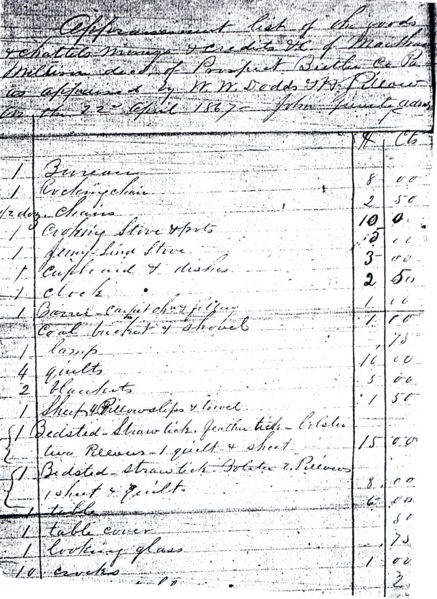 Appraisement list of the goods
& chattels moneys & credits &c of Martha
decd of Prospect Butler Co Pa
as appraised by W. W. Dodds &
on the 22nd April 1867 – John
$ Cts
1 Bureau 8 00
1 Rocking chair 2 50
1/2 doz chairs 10 0
1 Cooking Stove & pots 5 00
1 Jenny Lind Stove 3 00
1 Cupboard & dishes 2 50
1 Clock 1 00
1 1 00
Coal bucket & shovel ,75
1 lamp
4 quilts 00
2 blankets 5 00
1 Sheet 4 Pillowslips & towel 1 50
1 Bedsted – Strawtick feather tick – bolster
two Pillows – 1 quilt & sheet 15 00
1 Bedsted – strawtick – bolster 2 Pillows
1 sheet & quilts 8 00
1 table 6 00
1 table cover 50
1 looking glass ,75
10 crocks 1 00